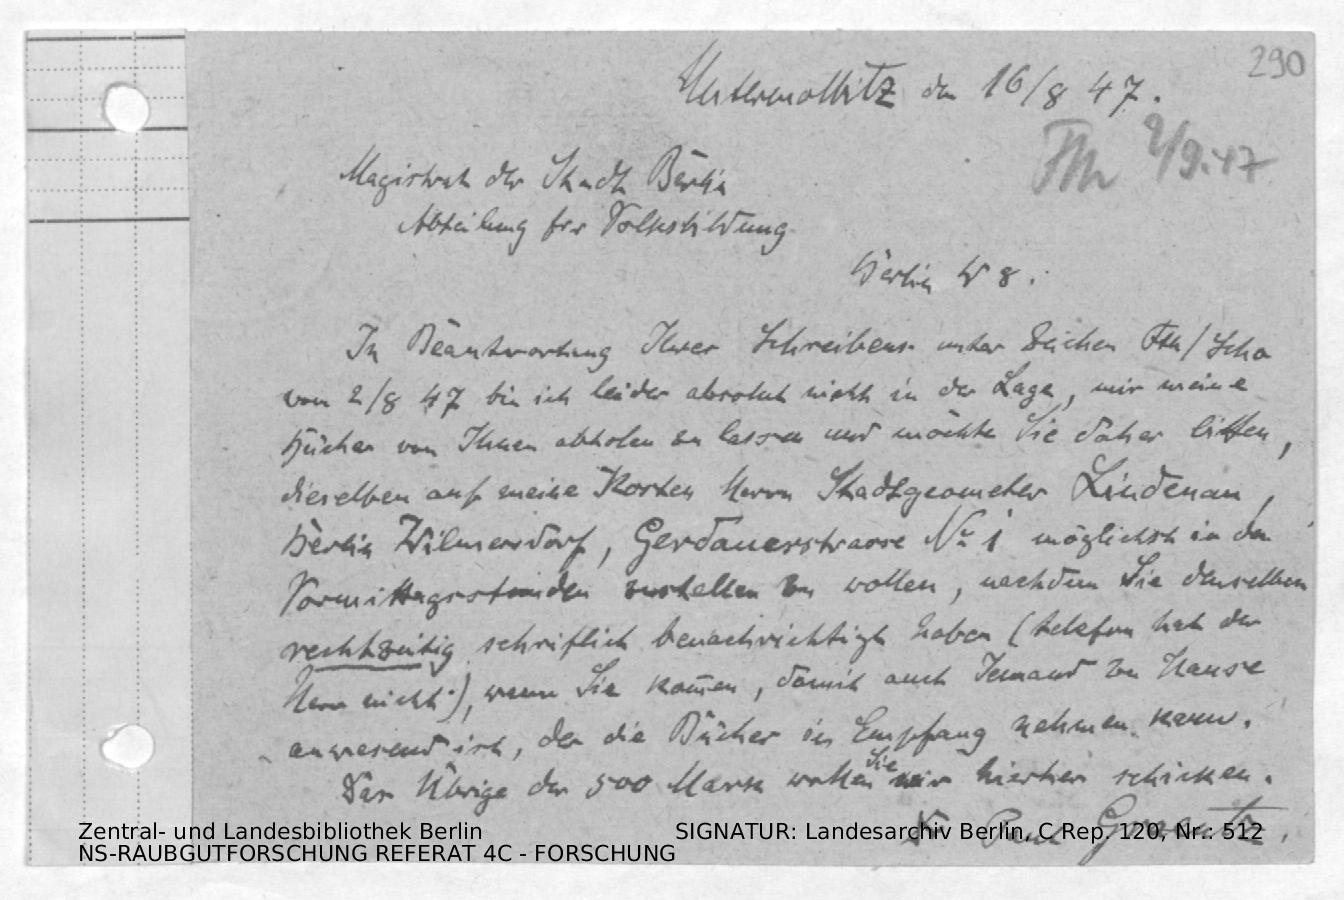 290
Untermollitz den 16/8 47.
2/9.47
Magistrat der Stadt Berlin
Abteilung für Volksbildung
Berlin W 8.
In Beantwortung Ihres Schreibens unter Zeichen Fth/Scho
vom 2/8 47 bin ich leider absolut nicht in der Lage, mir meine
Bücher von Ihnen abholen zu lassen und möchte Sie daher bitten,
dieselben auf meine Kosten Herrn Stadtgeometer Lindenau,
Berlin Wilmersdorf, Gerdauerstrasse No 1 möglichst in den
Vormittagsstunden zustellen zu wollen, nachdem Sie denselben
rechtzeitig schriftlich benachrichtigt haben (Telefon hat der
Herr nicht!), wann Sie kom̄en, damit auch Jemand zu Hause
anwesend ist, der die Bücher in Empfang nehmen kann.
Das Übrige der 500 Mark wollen Sie mir hierher schicken.
Paul
Zentral- und Landesbibliothek Berlin
NS-RAUBGUTFORSCHUNG REFERAT 4C - FORSCHUNG
SIGNATUR: Landesarchiv Berlin, C Rep. 120, Nr.: 512